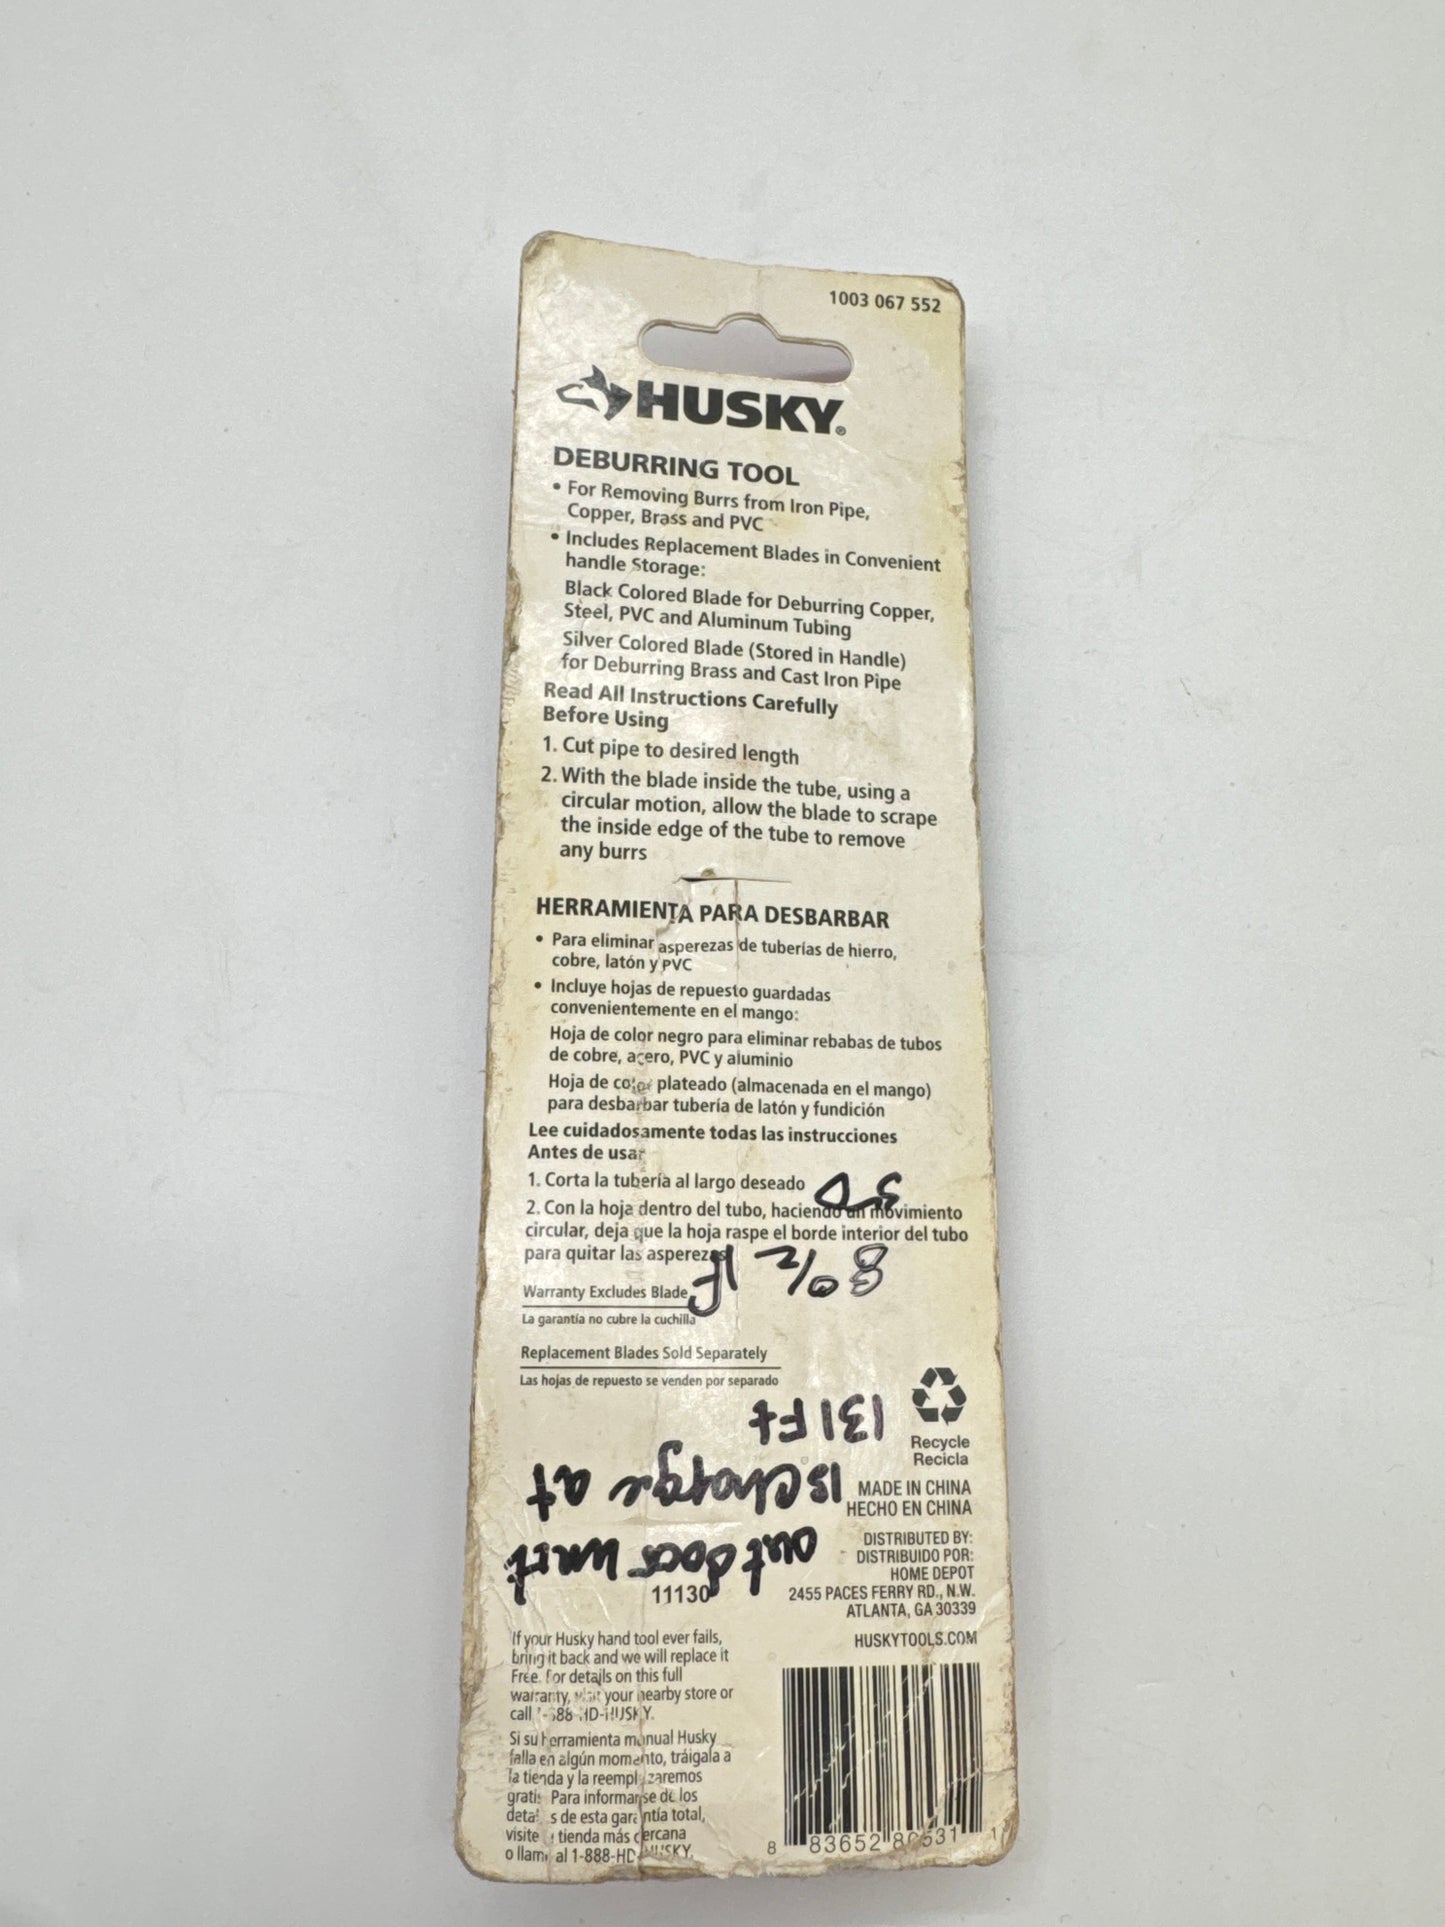 1003 067 552
HUSKY®
DEBURRING TOOL
• For Removing Burrs from Iron Pipe,
Copper, Brass and PVC
• Includes Replacement Blades in Convenient
handle Storage:
Black Colored Blade for Deburring Copper,
Steel, PVC and Aluminum Tubing
Silver Colored Blade (Stored in Handle)
for Deburring Brass and Cast Iron Pipe
Read All Instructions Carefully
Before Using
1. Cut pipe to desired length
2. With the blade inside the tube, using a
circular motion, allow the blade to scrape
the inside edge of the tube to remove
any burrs
HERRAMIENTA PARA DESBARBAR
• Para eliminar asperezas de tuberías de hierro,
cobre, latón y PVC
• Incluye hojas de repuesto guardadas
convenientemente en el mango:
Hoja de color negro para eliminar rebabas de tubos
de cobre, acero, PVC y aluminio
Hoja de color plateado (almacenada en el mango)
para desbarbar tubería de latón y fundición
Lee cuidadosamente todas las instrucciones
Antes de usar
1. Corta la tubería al largo deseado
2. Con la hoja dentro del tubo, haciendo un movimiento
circular, deja que la hoja raspe el borde interior del tubo
para quitar las asperezas
Warranty Excludes Blade
La garantía no cubre la cuchilla
Replacement Blades Sold Separately
Las hojas de repuesto se venden por separado
Recycle
Recicla
MADE IN CHINA
HECHO EN CHINA
DISTRIBUTED BY:
DISTRIBUIDO POR:
HOME DEPOT
2455 PACES FERRY RD., N.W.
ATLANTA, GA 30339
HUSKYTOOLS.COM
11130
out door unit
is charge at
131 Ft
If your Husky hand tool ever fails,
bring it back and we will replace it
Free. For details on this full
warranty, visit your nearby store or
call 1-888-HD-HUSKY.
Si su herramienta manual Husky
falla en algún momento, tráigala a
la tienda y la reemplazaremos
gratis. Para informarse de los
detalles de esta garantía total,
visite tienda más cercana
o llame al 1-888-HD-HUSKY.
8 83652 80531 1